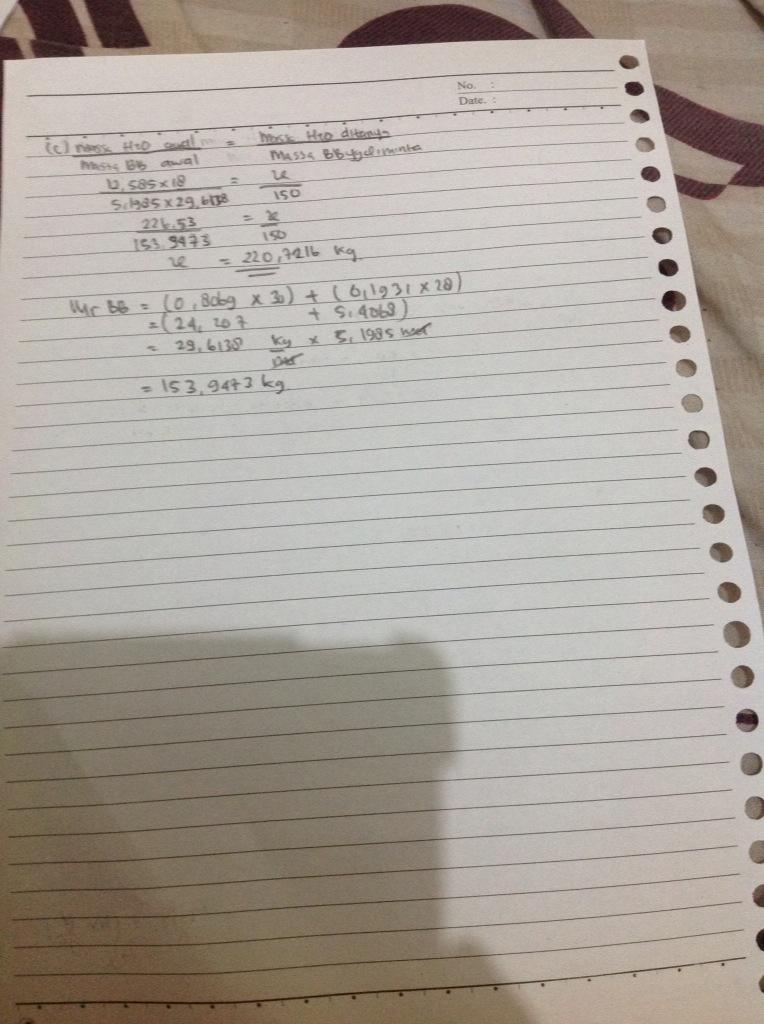 No. :
Date. :
(c) massa H2O awal = massa H2O ditanya
massa BB awal massa BB yg diminta
12,585 x 18 = x
5,1985 x 29,6138 150
226.53 = x
153.9473 150
x = 220,7216 kg
Mr BB = (0,8069 x 30) + (0,1931 x 28)
= (24,207 + 5,4068)
= 29,6138 kg x 5,1985
= 153,9473 kg